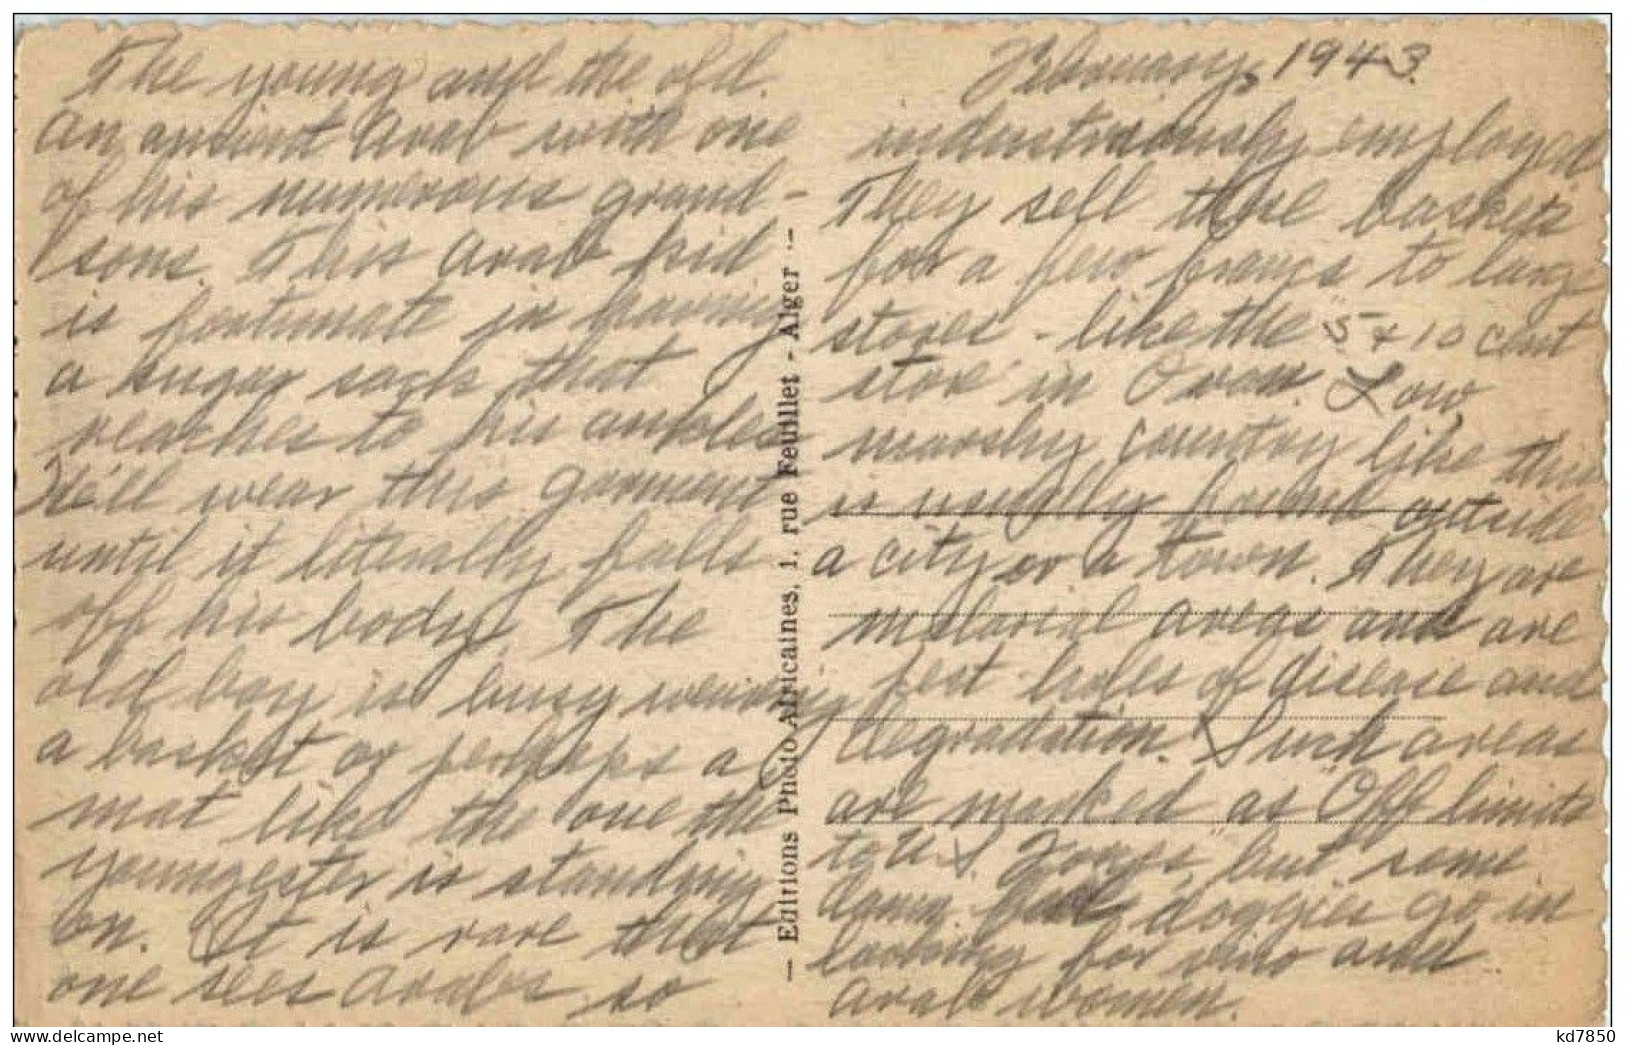 The young and the old.
An ancient Arab with one
of his numerous grand-
sons. This Arab kid
is fortunate in having
a sugar sack that
reaches to his ankles
He'll wear this garment
until it literally falls
off his body. The
old boy is busy weaving
a basket or perhaps a
mat like the one the
youngester is standing
on. It is rare that
one sees Arabs so
— Editions Photo Africaines, 1, rue Feuillet - Alger —
February, 1943
industriously employed
They sell these baskets
for a few francs to large
stores - like the 5 + 10 cent
store in Oran. Low,
marshy country like this
is usually found outside
a city or a town. They are
malarial areas and are
pest holes of disease and
degradation. Such areas
are marked as "Off limits
to U.S. Troops," but some
damn fool doggies go in
looking for vino and
Arab women.
delcampe.net
kd7850